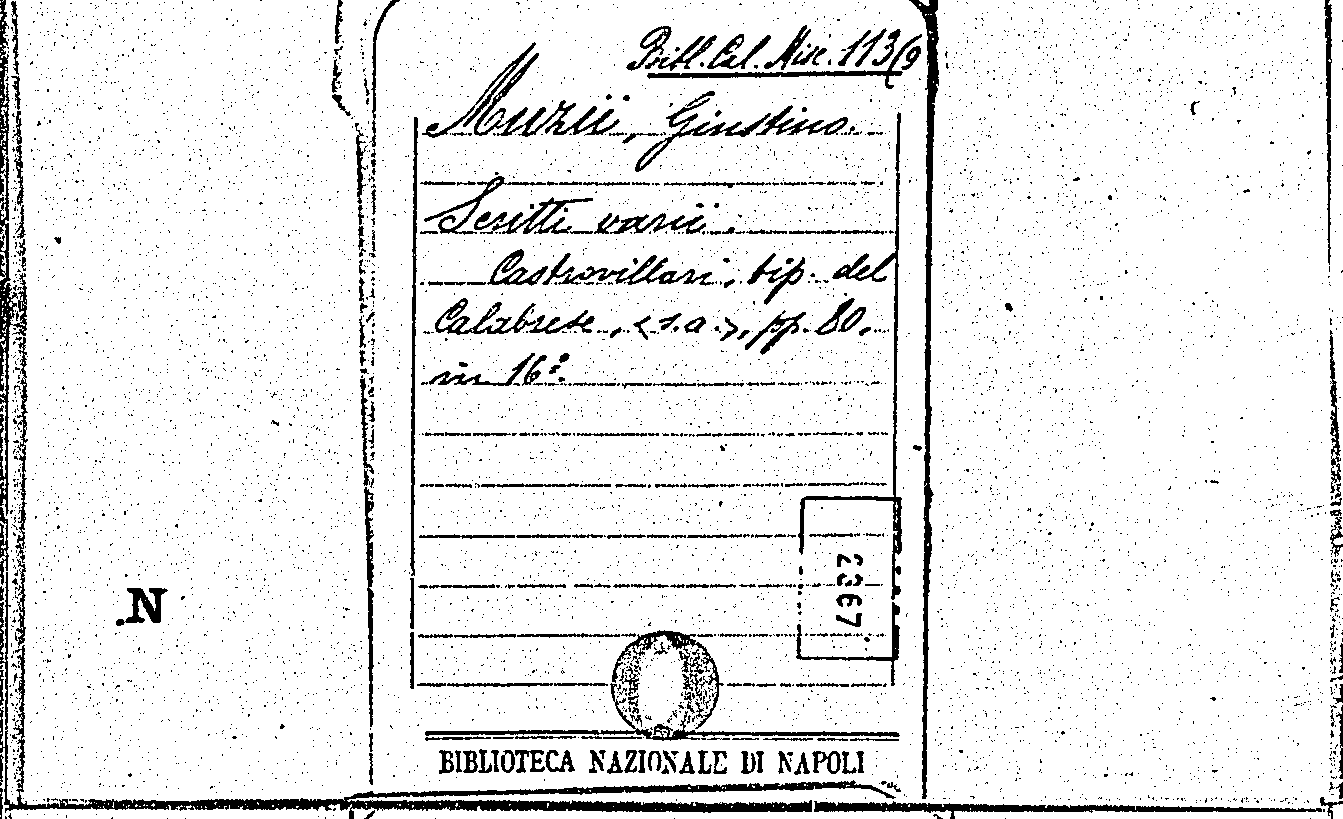 Bibl. Cal. Misc. 113(9
Muzii, Giustino.
Scritti varii.
Castrovillari, tip. del
Calabrese, <s.a.>, pp. 80.
in 16º.
2367
.N
BIBLIOTECA NAZIONALE DI NAPOLI